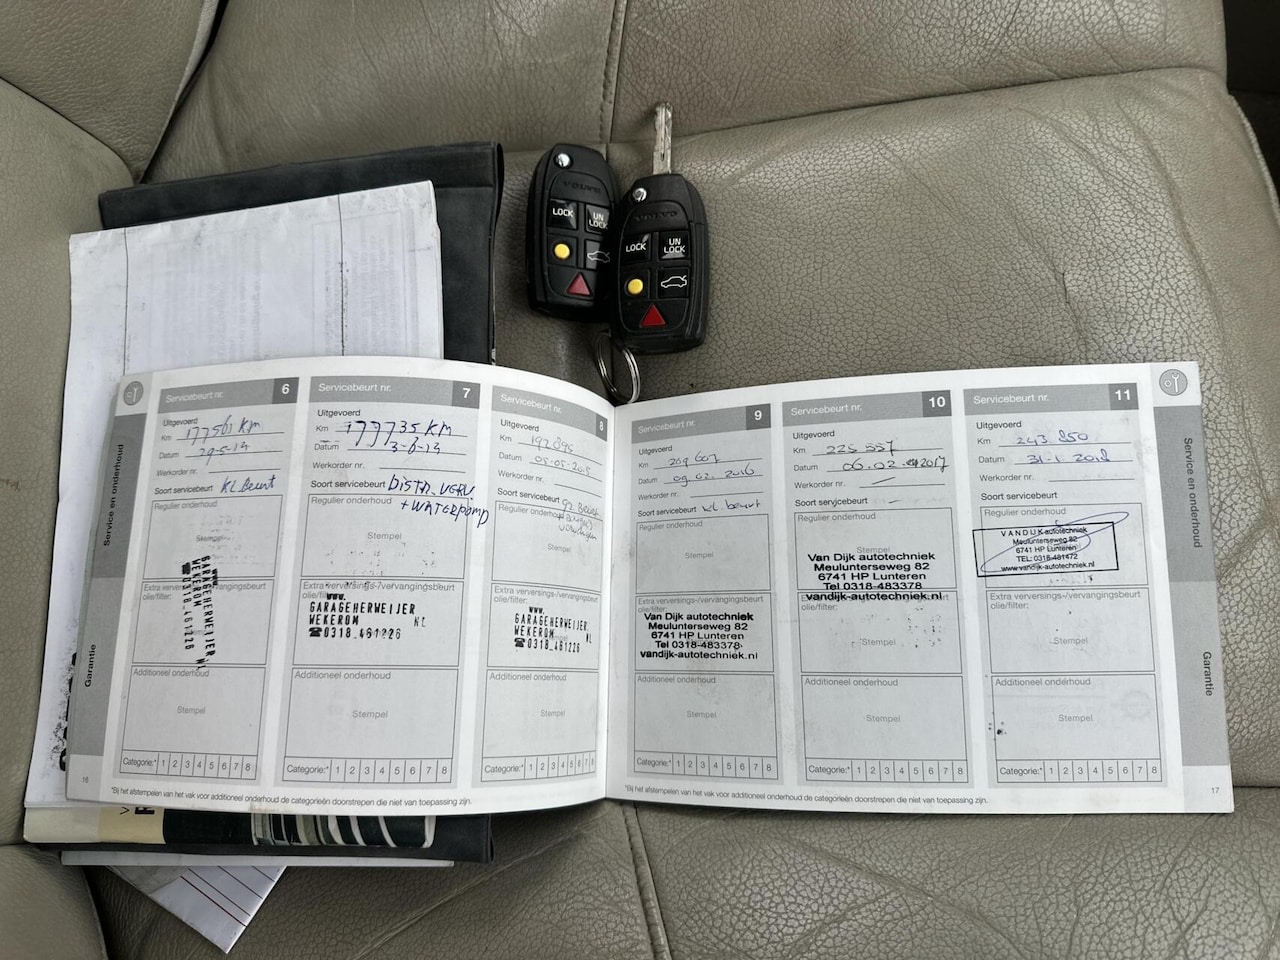 VOLVO
LOCK
UN
LOCK
VOLVO
LOCK
UN
LOCK
Service en onderhoud
Garantie
16
Servicebeurt nr. 6
Uitgevoerd
Km 177561 KM
Datum 29-5-13
Werkorder nr.
Soort servicebeurt KL Beurt
Regulier onderhoud
Stempel
Extra verversings-/vervangingsbeurt
olie/filter:
WWW.
GARAGEHERWEIJER
WEKEROM NL
☎0318_461226
Additioneel onderhoud
Stempel
Categorie:* 1 2 3 4 5 6 7 8
Servicebeurt nr. 7
Uitgevoerd
Km 177735 KM
Datum 3-6-13
Werkorder nr.
Soort servicebeurt DISTR. VERV.
+ WATERPOMP
Regulier onderhoud
Stempel
Extra verversings-/vervangingsbeurt
olie/filter:
WWW.
GARAGEHERWEIJER
WEKEROM NL
☎0318_461226
Additioneel onderhoud
Stempel
Categorie:* 1 2 3 4 5 6 7 8
Servicebeurt nr. 8
Uitgevoerd
Km 192895
Datum 05-05-2015
Werkorder nr.
Soort servicebeurt Beurt
Regulier onderhoud
Stempel
Extra verversings-/vervangingsbeurt
olie/filter:
WWW.
GARAGEHERWEIJER
WEKEROM NL
☎0318_461226
Additioneel onderhoud
Stempel
Categorie:* 1 2 3 4 5 6 7 8
*Bij het afstempelen van het vak voor additioneel onderhoud de categorieën doorstrepen die niet van toepassing zijn.
Servicebeurt nr. 9
Uitgevoerd
Km
Datum 09-02-2016
Werkorder nr.
Soort servicebeurt kl. beurt
Regulier onderhoud
Stempel
Extra verversings-/vervangingsbeurt
olie/filter:
Van Dijk autotechniek
Meulunterseweg 82
6741 HP Lunteren
Tel 0318-483378
vandijk-autotechniek.nl
Additioneel onderhoud
Stempel
Categorie:* 1 2 3 4 5 6 7 8
Servicebeurt nr. 10
Uitgevoerd
Km 225 557
Datum 06-02-2017
Werkorder nr.
Soort servicebeurt
Regulier onderhoud
Stempel
Van Dijk autotechniek
Meulunterseweg 82
6741 HP Lunteren
Tel 0318-483378
vandijk-autotechniek.nl
Extra verversings-/vervangingsbeurt
olie/filter:
Stempel
Additioneel onderhoud
Stempel
Categorie:* 1 2 3 4 5 6 7 8
Servicebeurt nr. 11
Uitgevoerd
Km 243 850
Datum 31-1-2018
Werkorder nr.
Soort servicebeurt
Regulier onderhoud
Stempel
VAN DIJK autotechniek
Meulunterseweg 82
6741 HP Lunteren
TEL: 0318-481472
www.vandijk-autotechniek.nl
Extra verversings-/vervangingsbeurt
olie/filter:
Stempel
Additioneel onderhoud
Stempel
Categorie:* 1 2 3 4 5 6 7 8
*Bij het afstempelen van het vak voor additioneel onderhoud de categorieën doorstrepen die niet van toepassing zijn.
Service en onderhoud
Garantie
17